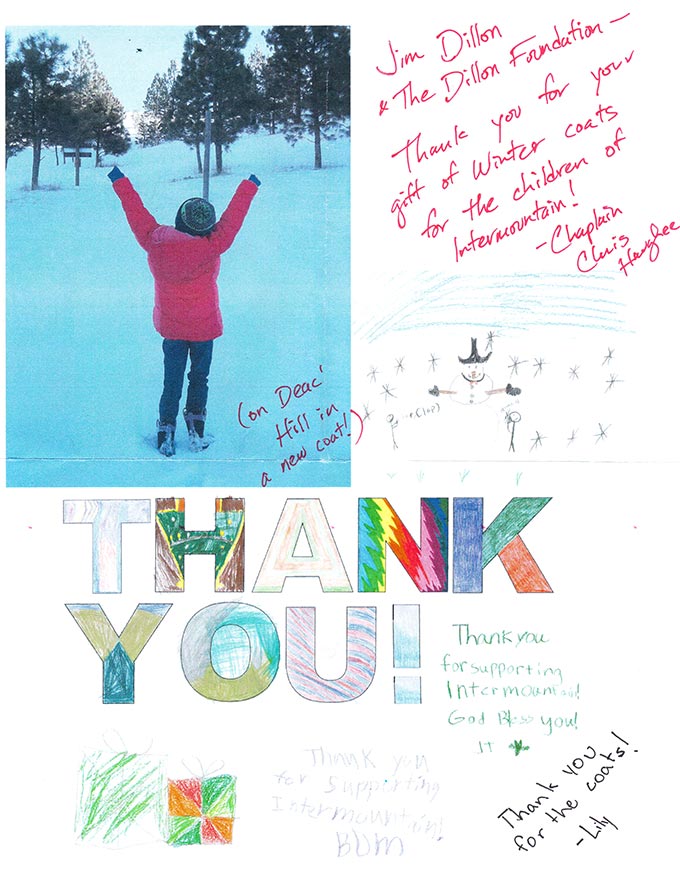 Jim Dillon
& The Dillon Foundation —
Thank you for your
gift of Winter coats
for the children of
Intermountain!
- Chaplain
Chris
(on Deac'
Hill in
a new coat!)
THANK
YOU!
Thank you
for supporting
Intermountain!
God Bless you!
JT
Thank you
for supporting
Intermountain!
BDM
Thank you
for the coats!
- Lily